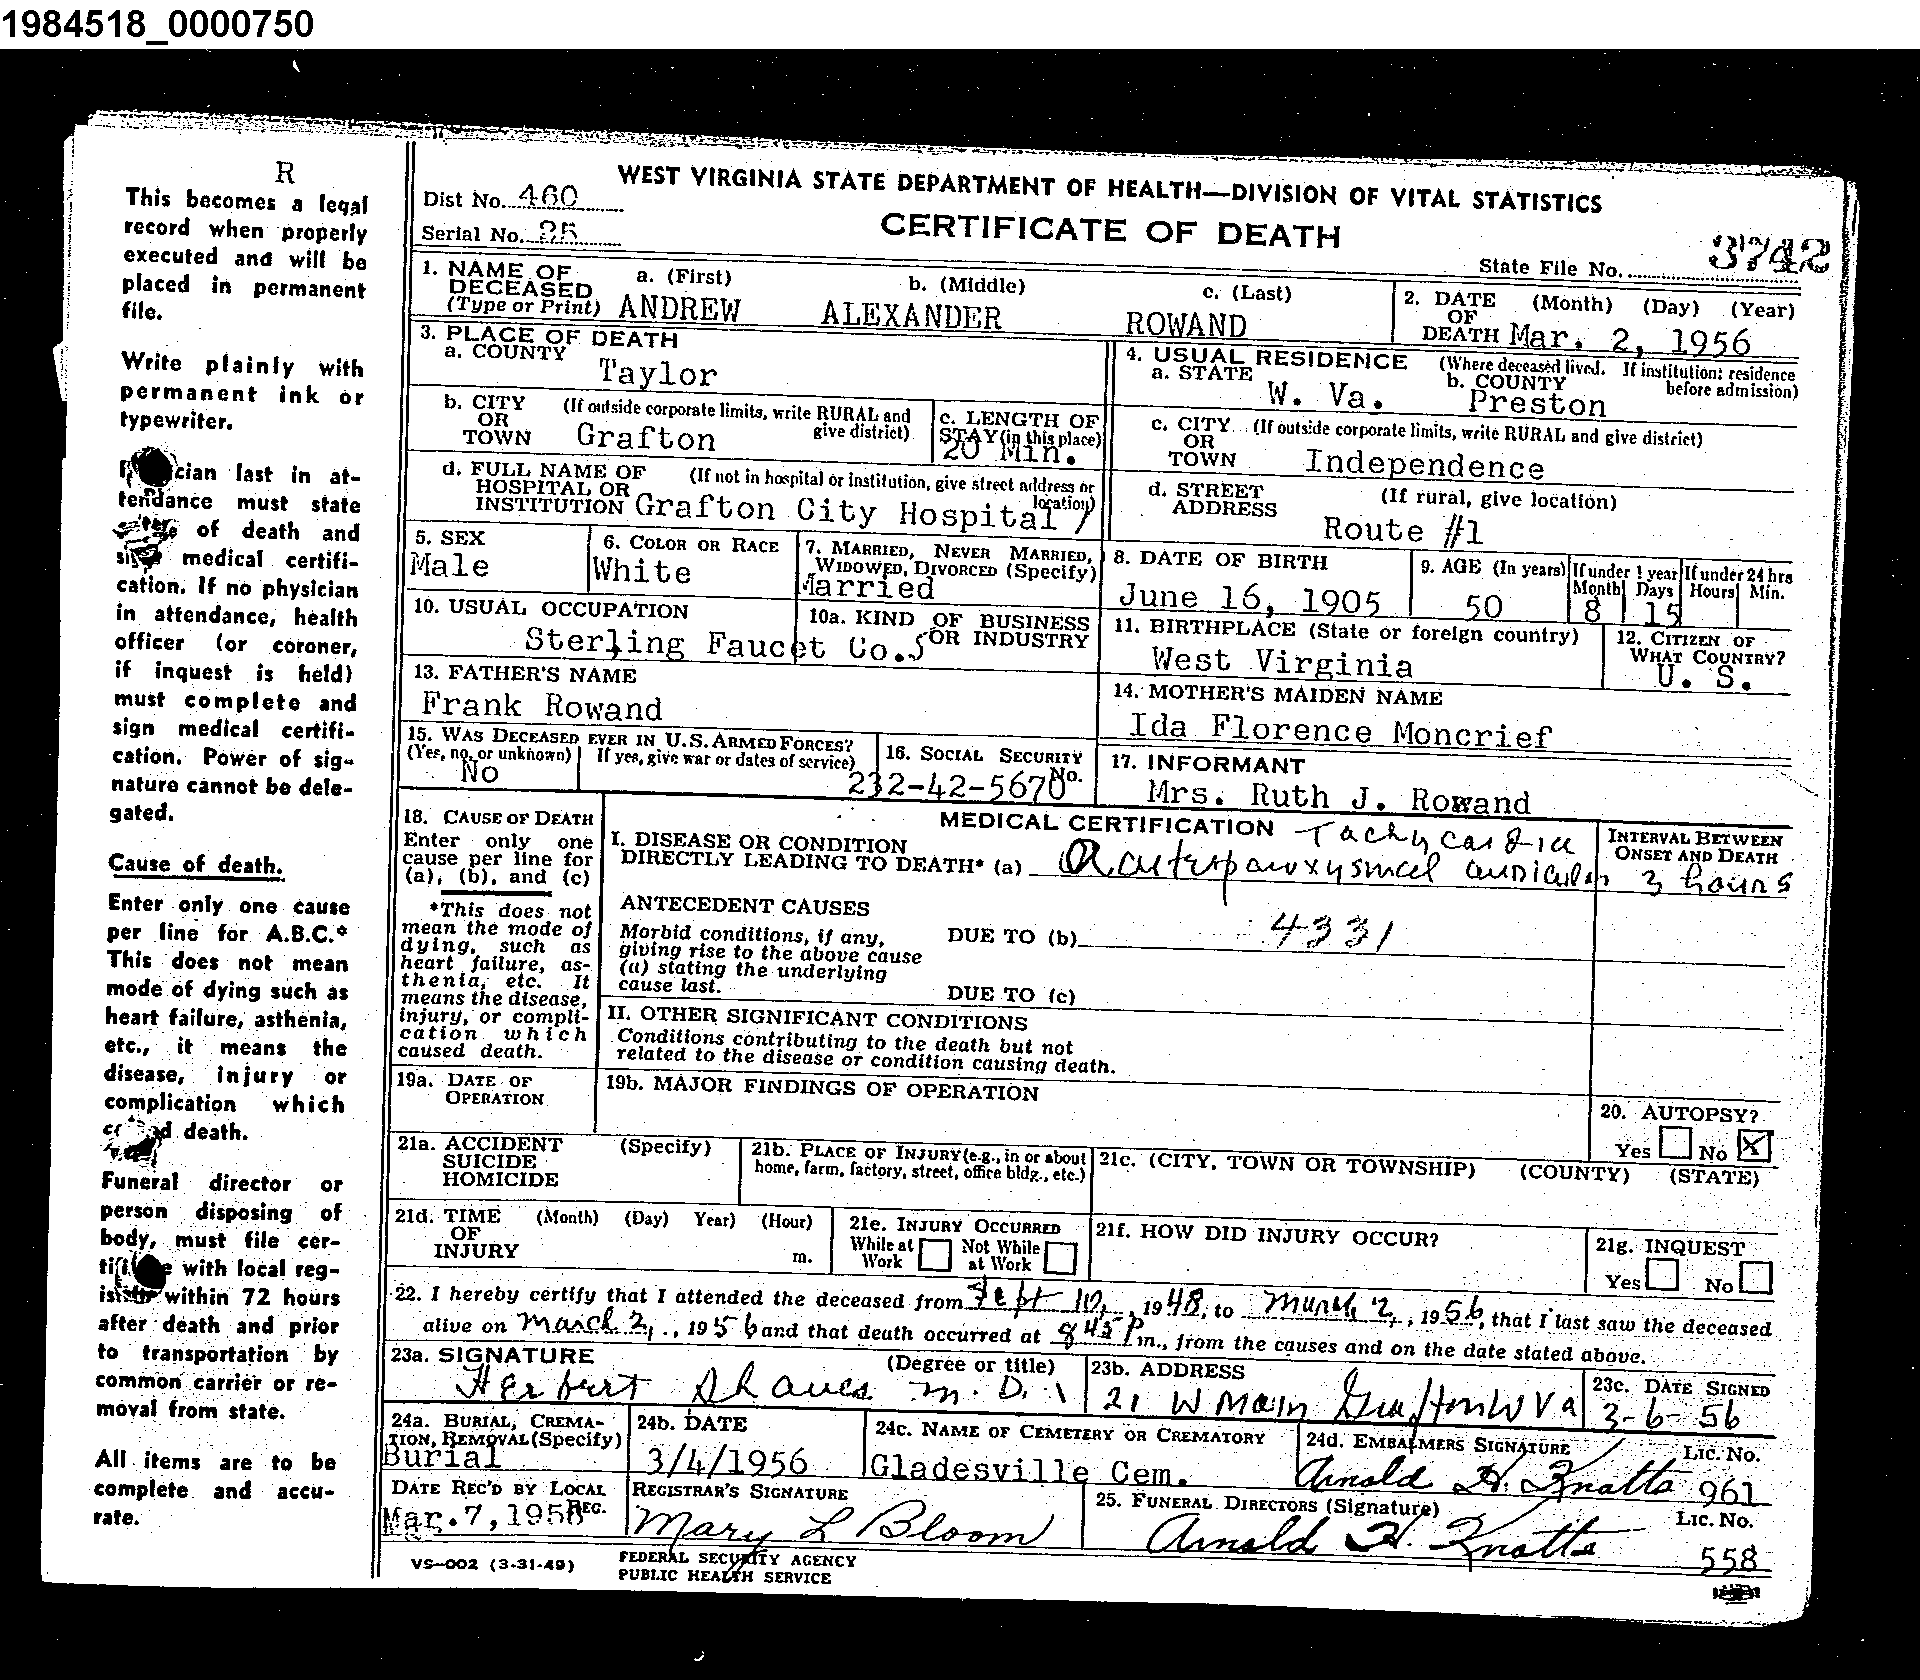 1984518_0000750
R
This becomes a legal
record when properly
executed and will be
placed in permanent
file.
Write plainly with
permanent ink or
typewriter.
cian last in at-
tendance must state
of death and
medical certifi-
cation. If no physician
in attendance, health
officer (or coroner,
if inquest is held)
must complete and
sign medical certifi-
cation. Power of sig-
nature cannot be dele-
gated.
Cause of death.
Enter only one cause
per line for A.B.C.*
This does not mean
mode of dying such as
heart failure, asthenia,
etc., it means the
disease, injury or
complication which
death.
Funeral director or
person disposing of
body, must file cer-
with local reg-
within 72 hours
after death and prior
to transportation by
common carrier or re-
moval from state.
All items are to be
complete and accu-
rate.
WEST VIRGINIA STATE DEPARTMENT OF HEALTH—DIVISION OF VITAL STATISTICS
Dist No. 460
CERTIFICATE OF DEATH
Serial No. 25
State File No. 3742
1. NAME OF DECEASED (Type or Print) a. (First) b. (Middle) c. (Last)
ANDREW ALEXANDER ROWAND
2. DATE OF DEATH (Month) (Day) (Year)
Mar. 2, 1956
3. PLACE OF DEATH
a. COUNTY Taylor
4. USUAL RESIDENCE (Where deceased lived. If institution: residence before admission)
a. STATE W. Va. b. COUNTY Preston
b. CITY OR TOWN (If outside corporate limits, write RURAL and give district) Grafton
c. LENGTH OF STAY (in this place) 20 Min.
c. CITY OR TOWN (If outside corporate limits, write RURAL and give district)
Independence
d. FULL NAME OF HOSPITAL OR INSTITUTION (If not in hospital or institution, give street address or location)
Grafton City Hospital
d. STREET ADDRESS (If rural, give location)
Route #1
5. SEX Male
6. COLOR OR RACE White
7. MARRIED, NEVER MARRIED, WIDOWED, DIVORCED (Specify) Married
8. DATE OF BIRTH June 16, 1905
9. AGE (In years) 50
If under 1 year Month 8 Days 15
If under 24 hrs Hours Min.
10. USUAL OCCUPATION
10a. KIND OF BUSINESS OR INDUSTRY
Sterling Faucet Co.
11. BIRTHPLACE (State or foreign country) West Virginia
12. CITIZEN OF WHAT COUNTRY? U. S.
13. FATHER'S NAME
Frank Rowand
14. MOTHER'S MAIDEN NAME
Ida Florence Moncrief
15. WAS DECEASED EVER IN U.S. ARMED FORCES?
(Yes, no, or unknown) If yes, give war or dates of service)
No
16. SOCIAL SECURITY No.
232-42-5670
17. INFORMANT
Mrs. Ruth J. Rowand
18. CAUSE OF DEATH
Enter only one
cause per line for
(a), (b), and (c)
*This does not
mean the mode of
dying, such as
heart failure, as-
thenia, etc. It
means the disease,
injury, or compli-
cation which
caused death.
MEDICAL CERTIFICATION
Tachycardia
I. DISEASE OR CONDITION
DIRECTLY LEADING TO DEATH* (a) Acute paroxysmal auricular
INTERVAL BETWEEN ONSET AND DEATH
3 hours
ANTECEDENT CAUSES
Morbid conditions, if any,
giving rise to the above cause
(a) stating the underlying
cause last.
DUE TO (b) 4331
DUE TO (c)
II. OTHER SIGNIFICANT CONDITIONS
Conditions contributing to the death but not
related to the disease or condition causing death.
19a. DATE OF OPERATION
19b. MAJOR FINDINGS OF OPERATION
20. AUTOPSY?
Yes No X
21a. ACCIDENT SUICIDE HOMICIDE (Specify)
21b. PLACE OF INJURY (e.g., in or about home, farm, factory, street, office bldg., etc.)
21c. (CITY, TOWN OR TOWNSHIP) (COUNTY) (STATE)
21d. TIME OF INJURY (Month) (Day) Year) (Hour) m.
21e. INJURY OCCURRED
While at Work Not While at Work
21f. HOW DID INJURY OCCUR?
21g. INQUEST
Yes No
22. I hereby certify that I attended the deceased from Sept 10, 1948, to March 2, 1956, that i last saw the deceased
alive on March 2, 1956 and that death occurred at 845 Pm., from the causes and on the date stated above.
23a. SIGNATURE (Degree or title)
Herbert M.D.
23b. ADDRESS
21 W Main Grafton W Va
23c. DATE SIGNED
3-6-56
24a. BURIAL, CREMA-
TION, REMOVAL (Specify)
Burial
24b. DATE
3/4/1956
24c. NAME OF CEMETERY OR CREMATORY
Gladesville Cem.
24d. EMBALMERS SIGNATURE Lic. No.
Arnold H. Knotts 961
DATE REC'D BY LOCAL REG.
Mar. 7, 1956
REGISTRAR'S SIGNATURE
Mary L Bloom
25. FUNERAL DIRECTORS (Signature) Lic. No.
Arnold H. Knotts 558
VS-002 (3-31-49)
FEDERAL SECURITY AGENCY
PUBLIC HEALTH SERVICE